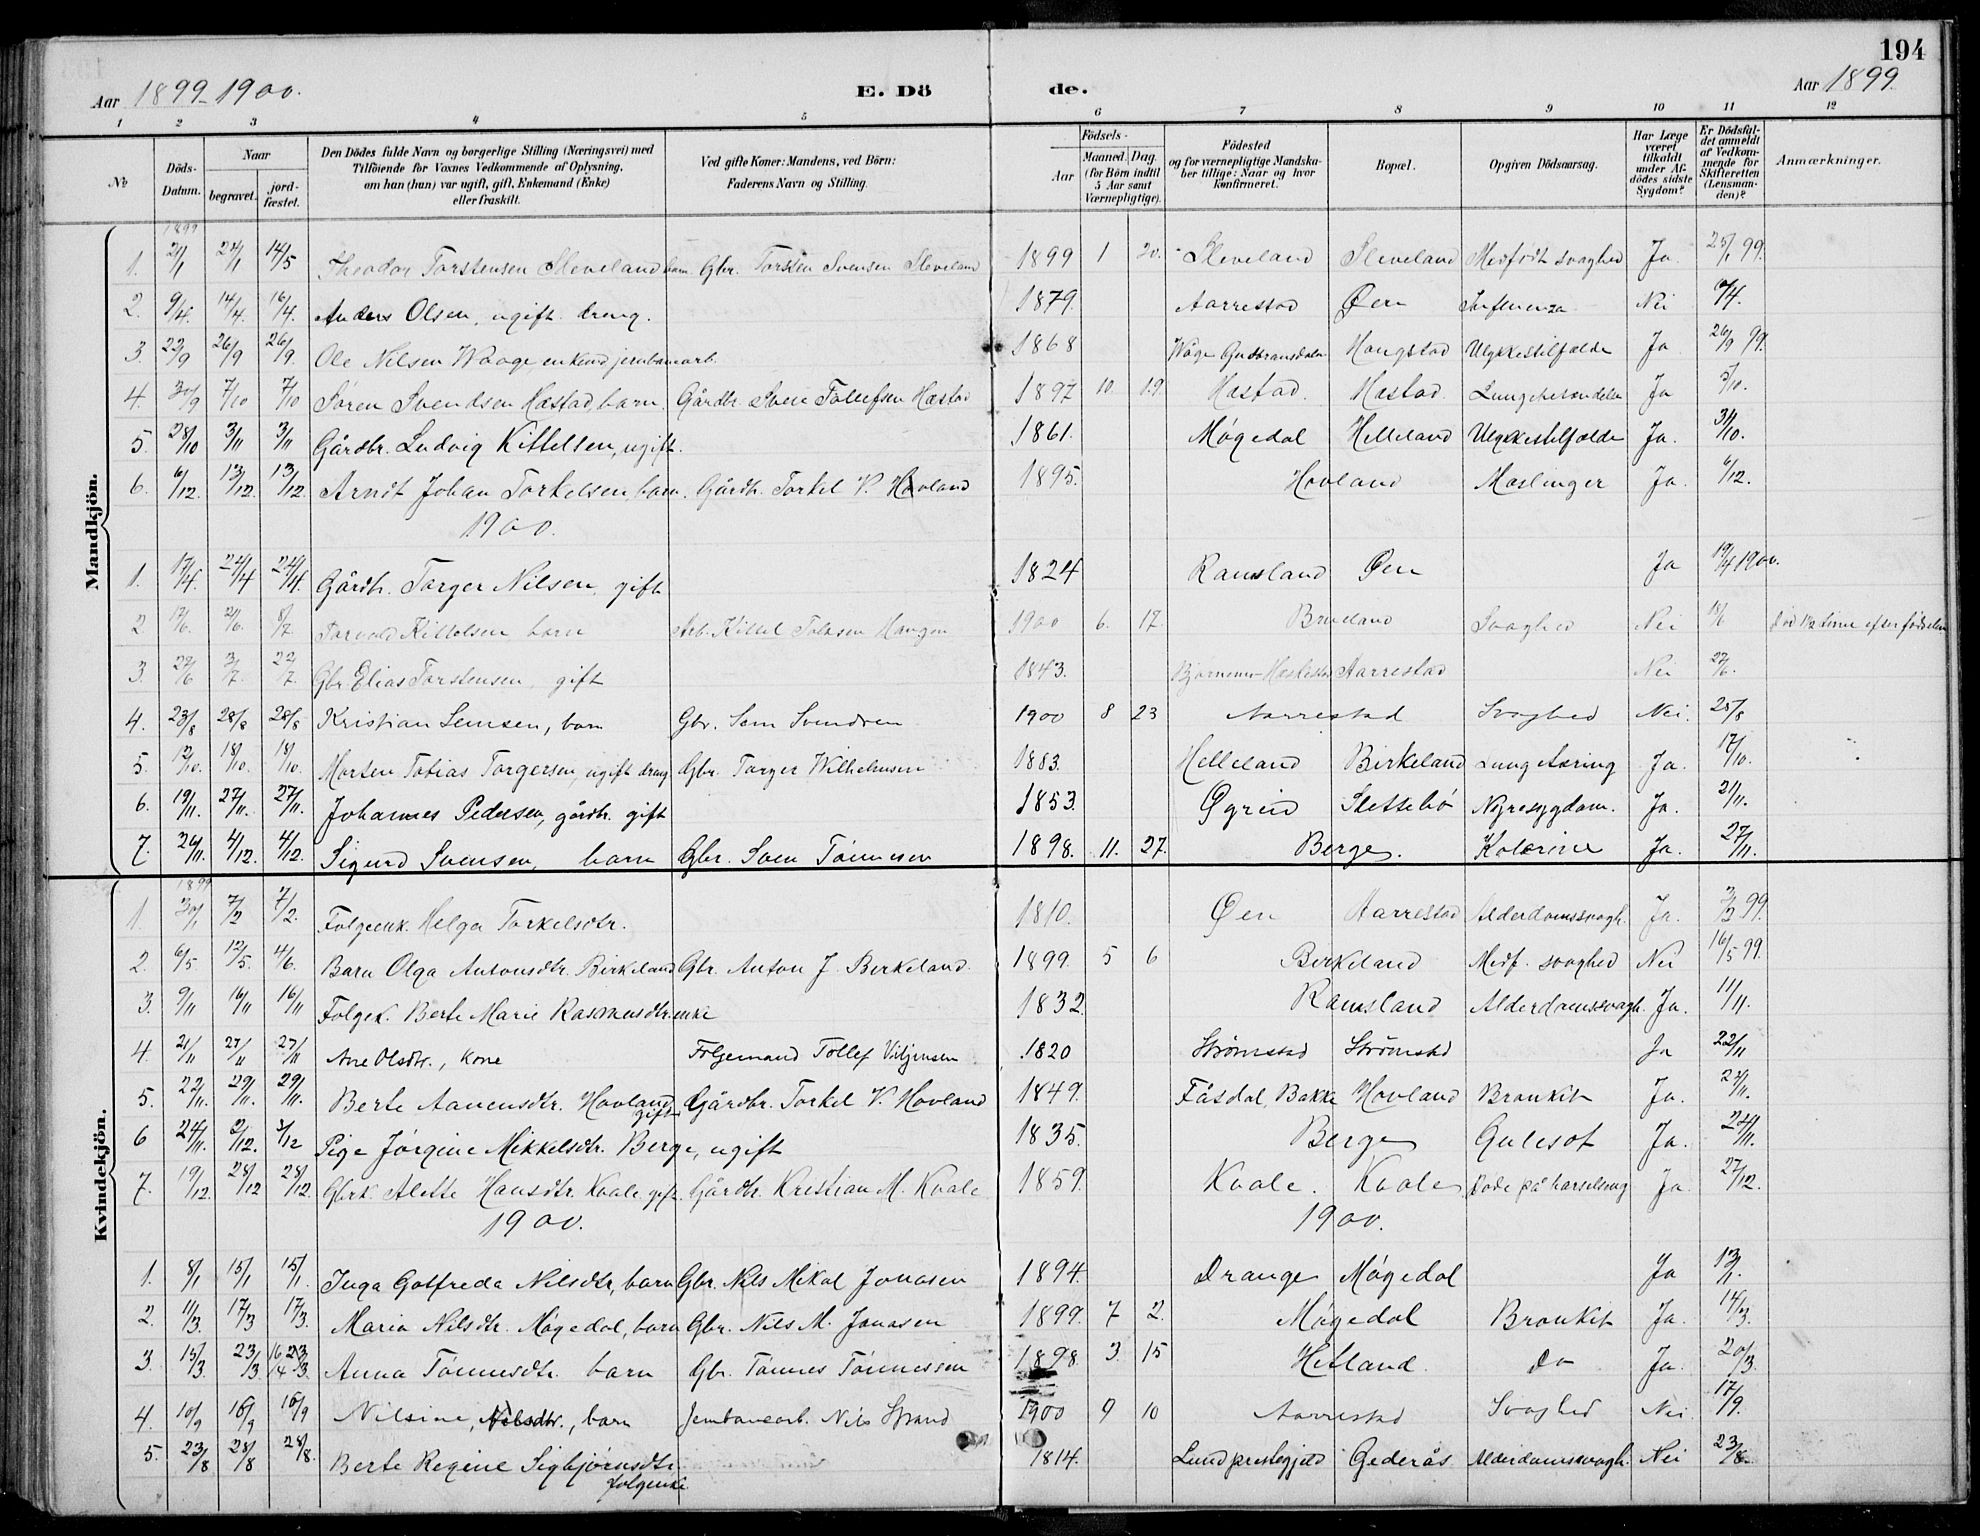 194
Aar 1899-1900.
E. Dö
de.
Aar 1899.
1 2 3 4 5 6 7 8 9 10 11 12
No
Döds-Datum.
Naar
begravet.
jord-fæstet.
Den Dödes fulde Navn og borgerlige Stilling (Næringsvei) med
Tilföiende for Voxnes Vedkommende af Oplysning,
om han (hun) var ugift, gift, Enkemand (Enke)
eller fraskilt.
Ved gifte Koner: Mandens, ved Börn:
Faderens Navn og Stilling.
Födsels-
Aar
Maaned. Dag.
(for Börn indtil
5 Aar samt
Værnepligtige).
Födested
og for værnepligtige Mandska-
ber tillige: Naar og hvor
Konfirmeret.
Bopæl.
Opgiven Dödsaarsag.
Har Læge
været
tilkaldt
under Af-
dödes sidste
Sygdom?
Er Dödsfal-
det anmeldt
af Vedkom-
mende for
Skifteretten
(Lensman-
den)?
Anmærkninger.
Mandkjön.
1899
1. 21/1 24/1 14/5 Theodor Torstensen Sleveland barn. Gbr. Torsten Svensen Sleveland 1899 1 20. Sleveland Sleveland Medfødt svaghed Ja 25/1 99.
2. 9/4. 14/4. 16/4. Anders Olsen, ugift dreng. 1879. Aarrestad Øen Influenza Nei /4.
3 22/9 26/9 26/9 Ole Nilsen Waage enkemd jernbanearb. 1868 Våge Gudbransdalen Haugstad Ulykkestilfælde Ja 26/9 99.
4. 30/9 7/10 7/10 Søren Svendsen Hæstad, barn. Gårdbr. Sven Tollefsen Hæstad 1897 10 19 Hæstad. Hæstad. Lungebetændelse Ja 5/10.
5. 28/10 3/11 3/11 Gårdbr. Ludvig Kittelsen, ugift. 1861. Møgedal Helleland Ulykkestilfælde Ja. 31/10.
6. 6/12. 13/12. 13/12. Arndt Johan Torkelsen, barn. Gårdb. Torkel V. Hovland 1895. Hovland Mæslinger Ja. 6/12.
1900.
1. 17/4. 24/4 24/4. Gårdb. Torger Nilsen, gift 1824 Ramsland Øen Ja 19/4 1900.
2 17/6. 21/6. 8/7. Torvald Kittelsen barn Arb. Kittel Tolasen Haugen 1900 6. 17. Brueland Svaghed Nei 18/6 død 1/2 time efter fødselen
3. 24/6 3/7. 22/7. Gbr. Elias Torstensen, gift 1843. Aarrestad Nei 27/6.
4. 23/8 28/8 28/8 Kristian Semsen, barn Gbr. Sem Svendsen 1900 8 23 Aarrestad Svaghed Nei. 25/8
5. 12/10. 18/10. 18/10. Morten Tobias Torgersen, ugift dreng Gbr. Torger Wilhelmsen 1883. Helleland Birkeland Lungetæring Ja. 17/10.
6. 19/11. 27/11. 27/11. Johannes Pedersen, gårdbr. gift 1853. Øgreid Slettebø Nyresygdom. Ja. 21/11.
7. 26/11. 4/12. 4/12. Sigurd Svensen, barn Gbr. Sven Tønnesen 1898. 11. 27. Berge. Kolerine Ja. 27/11.
Kvindekjön.
1899
1. 30/1 7/2 7/2. Folgeenk. Helga Torkelsdtr. 1810. Øen Aarrestad Alderdomssvagh. Ja. 3/2 99.
2. 6/5. 12/5. 4/6. Barn Olga Antonsdtr. Birkeland Gbr. Anton J. Birkeland. 1899. 5 6 Birkeland Medf. svaghed Nei 16/5 99.
3. 9/11 16/11 16/11 Folgek. Berte Marie Rasmusdtr. enke 1832. Ramsland Alderdomssvagh. Ja. 11/11.
4. 21/11 27/11 27/11 Ane Olsdtr., kone Folgemand Tollef Viljemsen 1820 Strømstad Strømstad Ja 22/11
5. 22/11. 29/11. 29/11. Berte Aanensdtr. Hovland, gift Gårdbr. Torkel V. Hovland 1849. Fåsdal, Bakke Hovland Bronkit Ja. 24/11.
6 24/11. 2/12. 3/12 Pige Jørgine Mikkelsdtr. Berge, ugift 1835. Berge Gulesot Ja. 24/11.
7. 19/12. 28/12 28/12. Gbrk. Alette Hansdtr. Kvale, gift. Gårdbr. Kristian M. Kvale 1859. Kvale. Kvale Døde på barselseng Ja 27/12.
1900. 1900.
1. 8/1 15/1 15/1. Inga Gotfreda Nilsdtr, barn Gbr. Nils Mikal Jonasen 1894. Drange Møgedal Ja 13/1.
2. 11/3. 17/3 17/3. Maria Nilsdtr. Møgedal, barn Gbr. Nils M. Jonasen 1899. 7 2. Møgedal Bronkit Ja. 14/3.
3. 15/3. 23/3 16/4 23/3. Anna Tønnesdtr. barn Gbr. Tønnes Tønnessen 1898. 3. 15 Hetland. Do Ja. 20/3.
4. 10/9 16/9 16/9 Nilsine, Nilsdtr., barn Jernbanearb. Nils Strand 1900 9 10 Aarrestad Svaghed Nei 17/9.
5. 23/8 28/8 28/8. Berte Regine Sigbjørnsdtr. folgeenke 1814. Lund prestegjeld Gederås Alderdomssvagh. Nei 23/8.